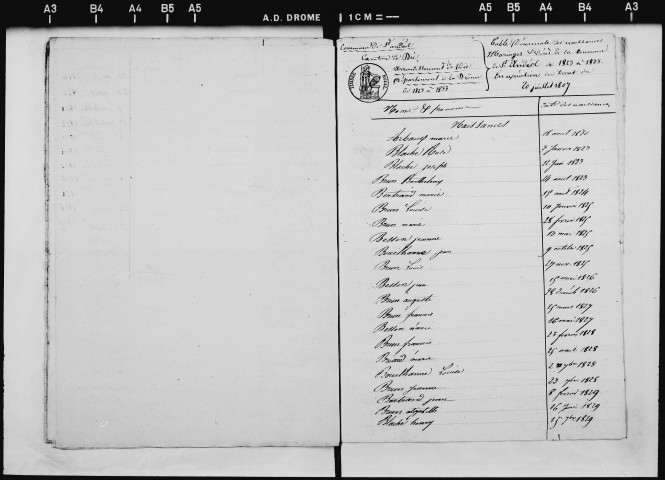 A3 B4 A4 B5 A5 A.D. DROME 1 CM = A5 B5 A4 B4 A3
Commune de St Andéol
Canton de Die
Arrondissement de Die
département de la Drôme
de 1823 à 1833
Table Décennale des naissances
Mariages & Décès de la commune
de St Andéol de 1823 à 1833
En exécution du décret du
20 juillet 1807
Noms & prénoms
date des naissances
Naissances
marie 18 août 1830
Blache Rose 3 janvier 1823
Blache joseph 12 juin 1823
Brun Barthélemy 4 août 1823
Bertrand marie 15 août 1824
Brun Louise 10 janvier 1825
Brun marie 28 février 1825
Besson jeanne 13 mai 1825
jean 9 octobre 1825
Brun Louis 27 nov. 1825
Besson jean 15 mai 1826
Brun auguste 28 décemb 1826
Brun francois 25 mars 1827
Besson marie 16 mai 1827
Brun francois 23 février 1828
marie 25 août 1828
Louise 7bre 1828
Brun jeanne 23 7bre 1828
Bertrand jean 8 février 1829
Brun 16 juin 1829
Blache henry 15 7bre 1829